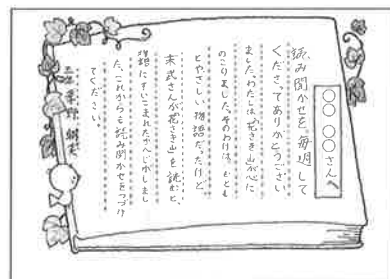 ○○ ○○さんへ
読み聞かせを毎週して
くださってありがとうござい
ました。わたしは「花さき山」が心に
のこりました。そのわけは、もとも
とやさしい物語だったけど、
末武さんが「花さき山」を読むと、
物語にすいこまれたかんじがしまし
た。これからも読み聞かせをつづけ
てください。